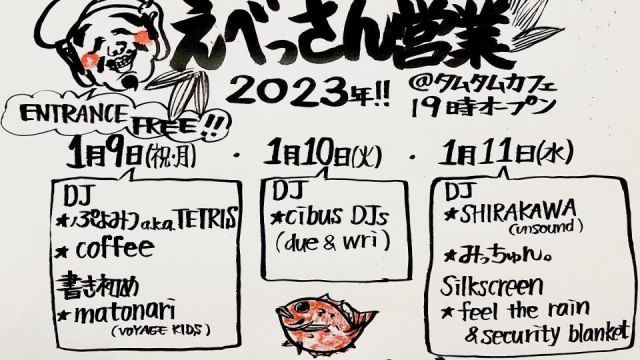 えべっさん営業
2023年!! @タムタムカフェ
19時オープン
ENTRANCE
FREE!!
1月9日(祝・月)
DJ
★ぷよみつ a.k.a. TETRIS
★coffee
書き初め
★matonari
(VOYAGE KIDS)
・1月10日(火)
DJ
★cibus DJs
(due & wri)
・1月11日(水)
DJ
★SHIRAKAWA
(unsound)
★みっちゅん。
Silkscreen
★feel the rain
& security blanket